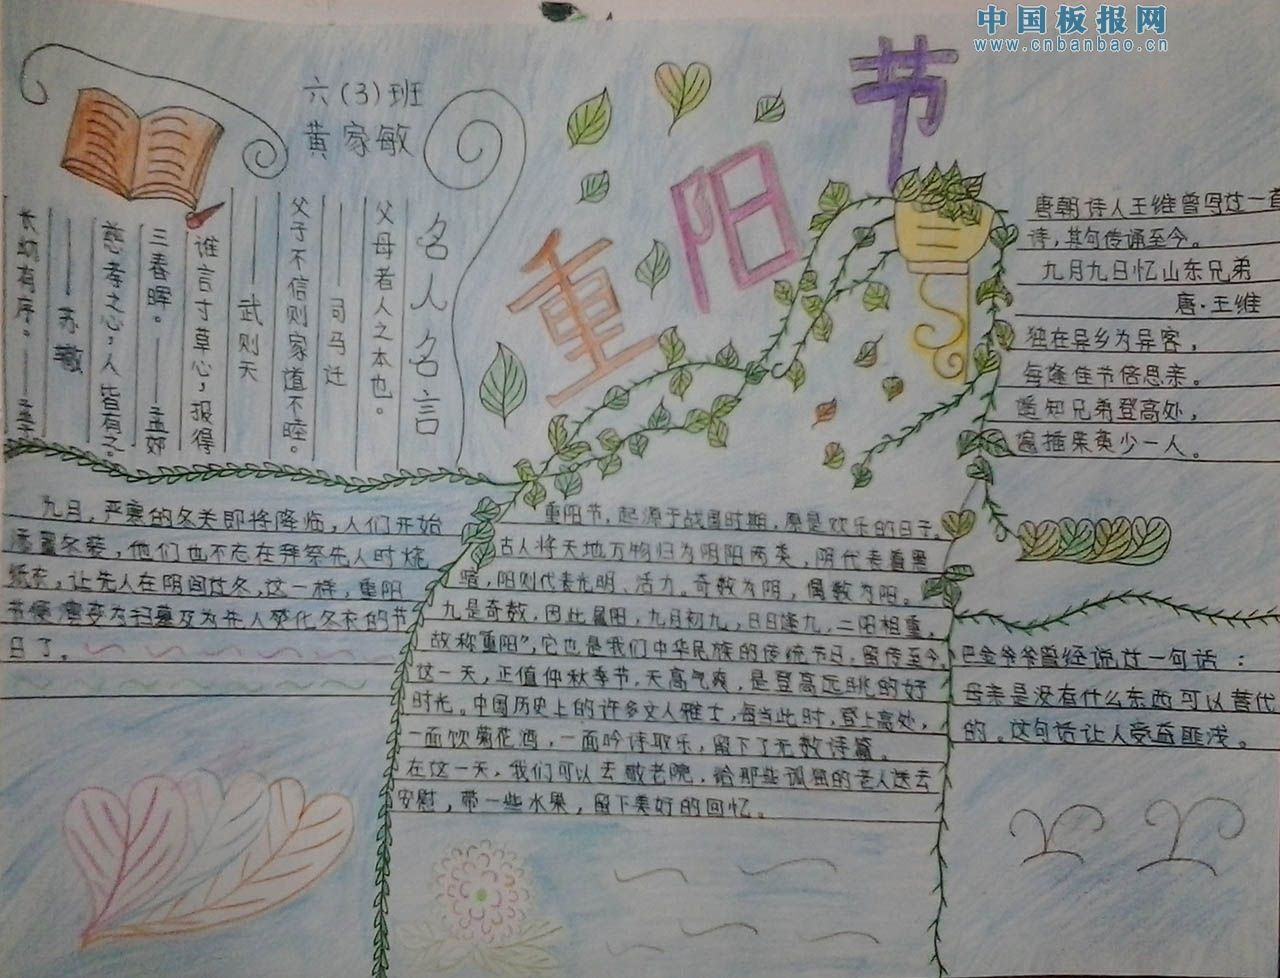 中国板报网
www.cnbanbao.cn
六(3)班
黄家敏
重阳节
名人名言
父母者人之本也。
——司马迁
父子不信则家道不睦。
——武则天
谁言寸草心，报得
三春晖。——孟郊
慈孝之心，人皆有之。
——苏辙
长幼有序。——孟
唐朝诗人王维曾写过一首
诗，其句传诵至今。
九月九日忆山东兄弟
唐·王维
独在异乡为异客，
每逢佳节倍思亲。
遥知兄弟登高处，
遍插茱萸少一人。
九月，严寒的冬天即将降临，人们开始
添置冬装，他们也不忘在拜祭先人时烧
纸衣，让先人在阴间过冬，这一样，重阳
节便演变为扫墓及为先人焚化冬衣的节
日了。
重阳节，起源于战国时期，原是欢乐的日子。
古人将天地万物归为阴阳两类，阴代表着黑
暗，阳则代表光明、活力。奇数为阴，偶数为阳。
九是奇数，因此属阳，九月初九，日日逢九，二阳相重，
故称“重阳”，它也是我们中华民族的传统节日，留传至今
这一天，正值仲秋季节，天高气爽，是登高远眺的好
时光。中国历史上的许多文人雅士，每当此时，登上高处，
一面饮菊花酒，一面吟诗取乐，留下了无数诗篇。
在这一天，我们可以去敬老院，给那些孤独的老人送去
安慰，带一些水果，留下美好的回忆。
巴金爷爷曾经说过一句话：
母亲是没有什么东西可以替代
的。这句话让人受益匪浅。